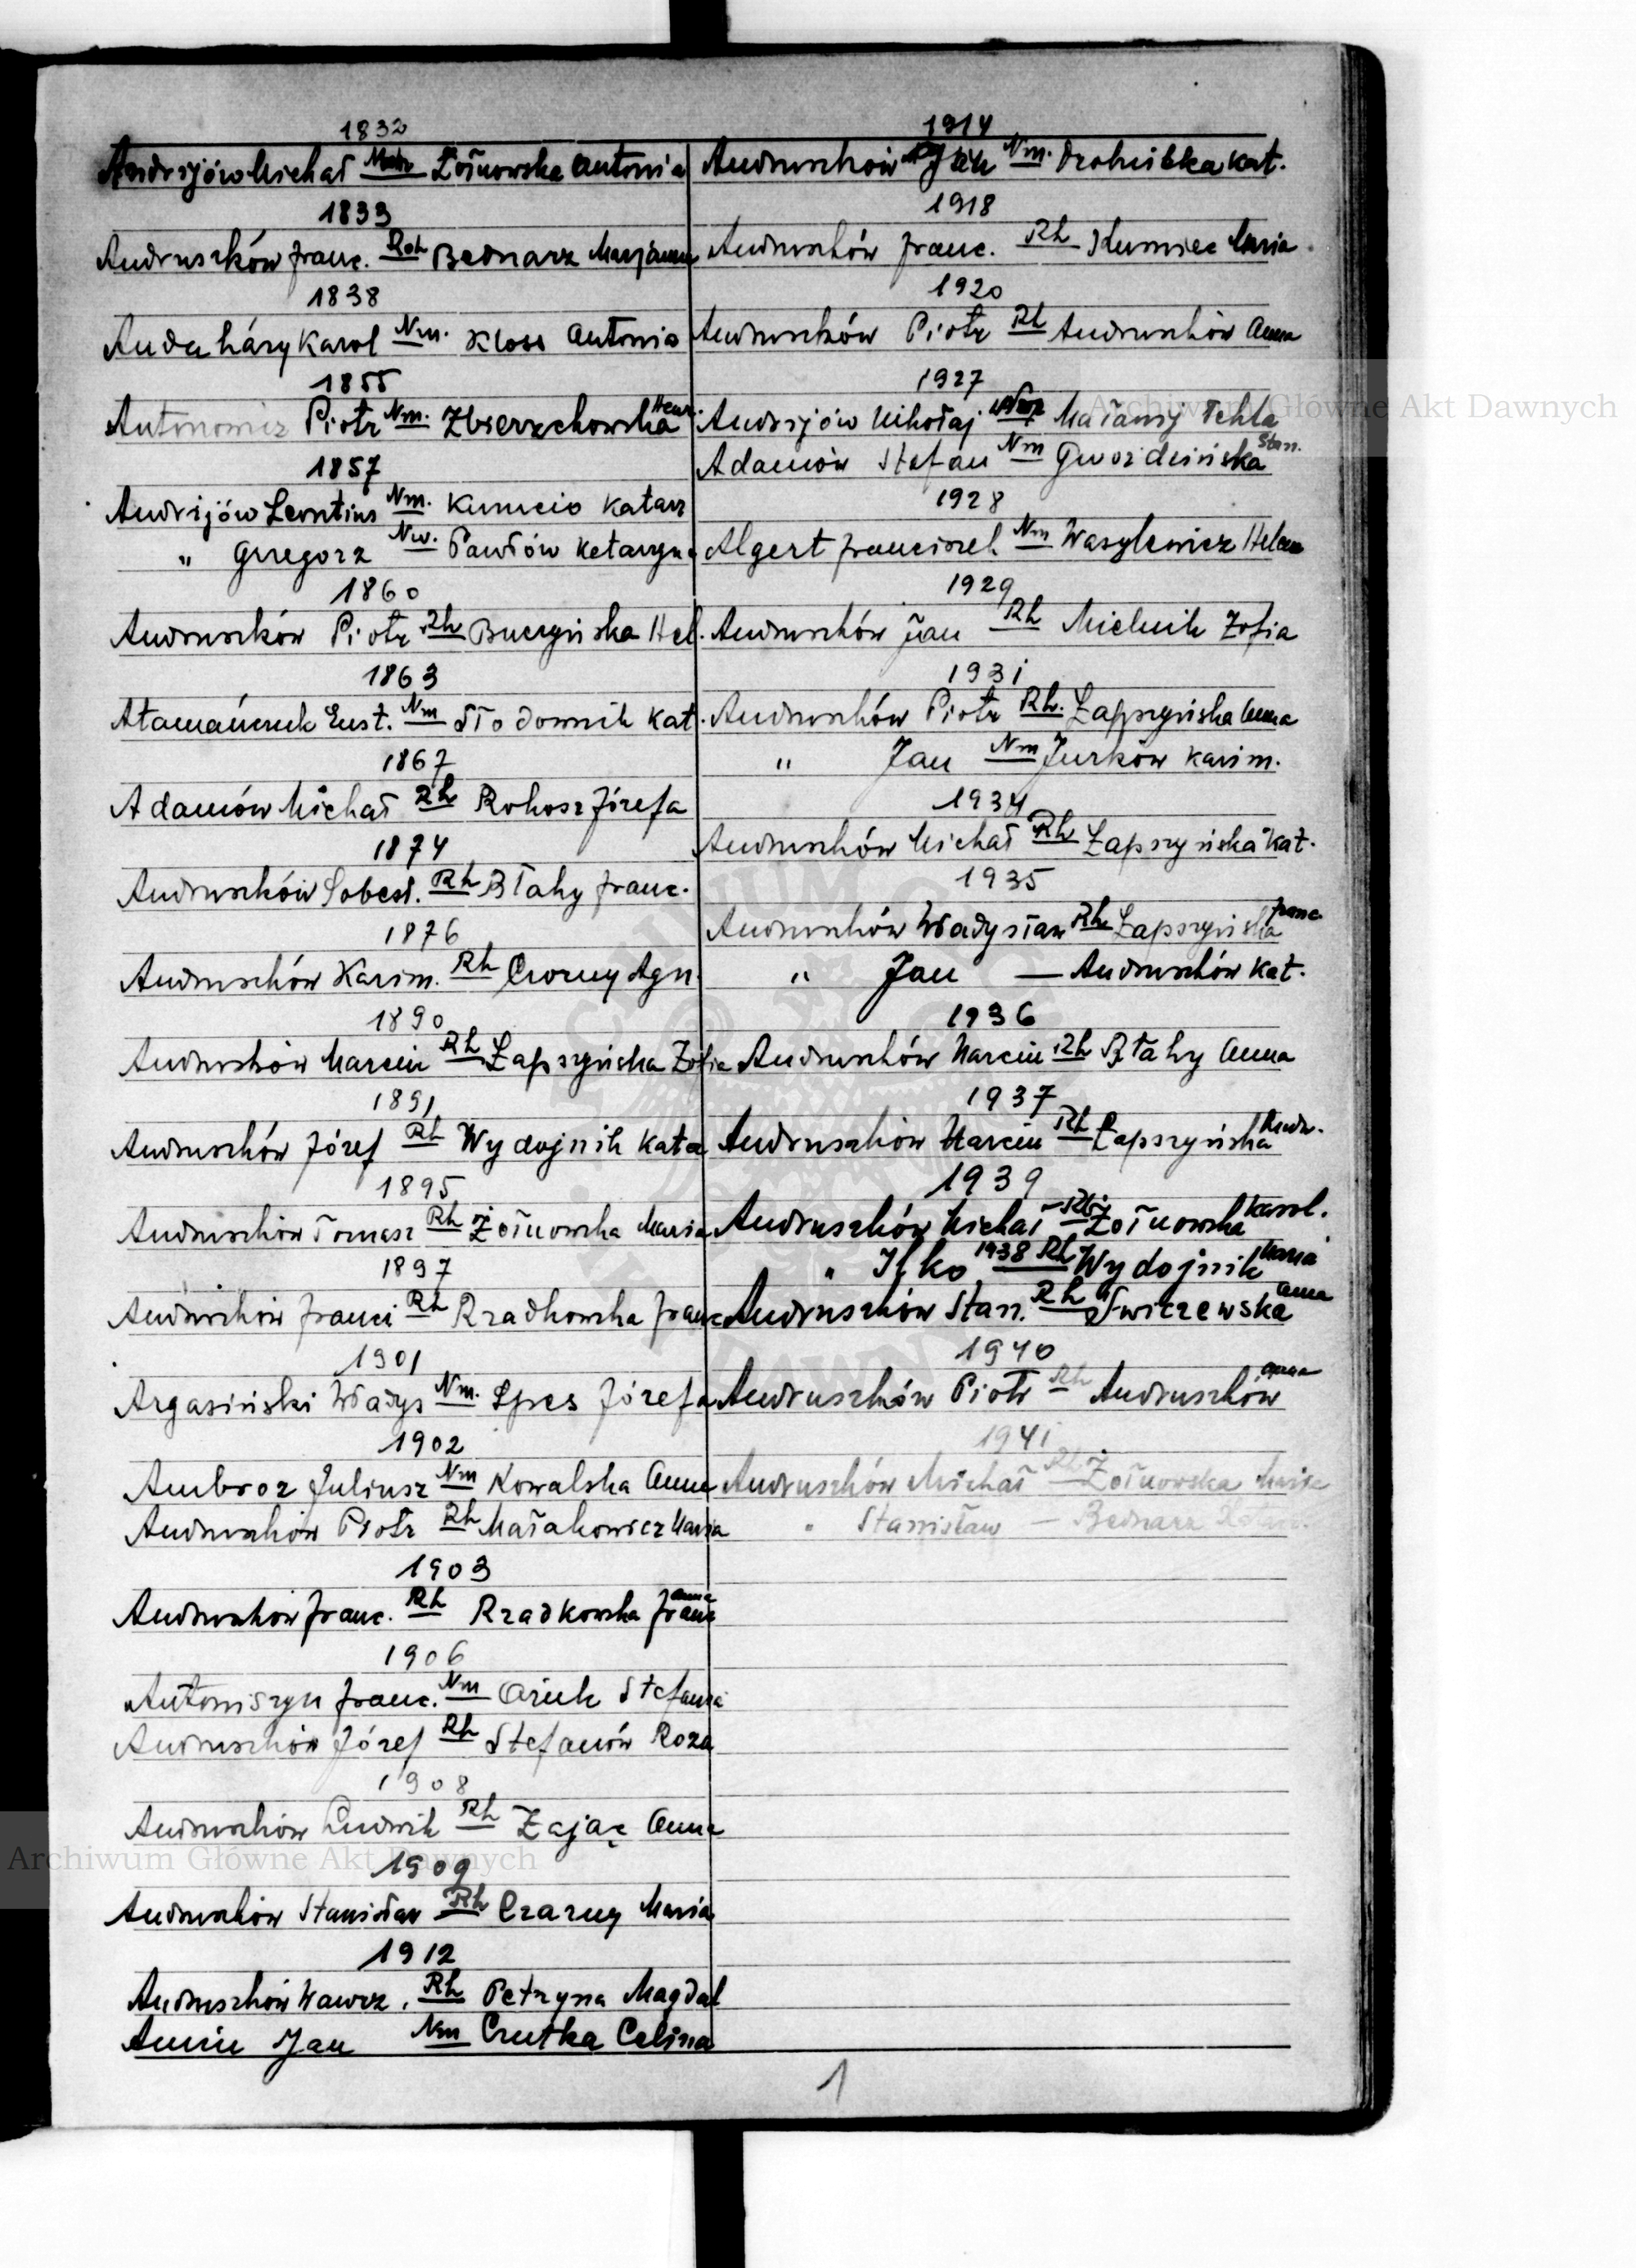 1832
Andrijów Michał Żołnowska Antonia
1833
Andruszków franc. Roh Bednarz Marjanna
1838
Andaházy Karol Nm. Kloss Antonia
1855
Antonowicz Piotr Nm. Zbierzchowska Henr.
1857
Andrijów Leontius Nm. Kumcio Katarz
" Grzegorz Nw. Pawłów Katarzyna
1860
Andruszków Piotr Rh Buczyńska Hel.
1863
Atamańczuk Eust. Nm Słodownik Kat.
1867
Adamów Michał Rh Rokosz Józefa
1874
Andruszków Sebest. Rh Błahy franc.
1876
Andruszków Kazim. Rh Czorny Agn.
1890
Andruszków Marcin Rh Łapszyńska Zofia
1891
Andruszków Józef Rh Wydojnik Kata
1895
Andruszków Tomasz Rh Żołnowska Maria
1897
Andruszków Franci Rh Rzadkowska franc
1901
Argasiński Władys Nm. Spes Józefa
1902
Ambroz Juliusz Nm Kowalska Anna
Andruszków Piotr Rh Małakowicz Maria
1903
Andruszków franc. Rh Rzadkowska franc Anna
1906
Antoniszyn franc. Nm Stefania
Andruszków Józef Rh Stefanów Roza
1908
Andruszków Ludwik Rh Zając Anna
1909
Andruszków Stanisław Rh Czarny Maria
1912
Andruszków Wawrz. Rh Petryna Magdal
Jan Nm Czutka Celina
1914
Andruszków Nm. Drohibka Kat.
1918
Andruszków franc. Rh Maria
1920
Andruszków Piotr Rh Andruszków Anna
1927
Andrijów Mikołaj Małanij Tekla
Adamów Stefan Nm Gwozdzińska Stan.
1928
Algert franciszek Nm Wasylewicz Helena
1929
Andruszków Jan Rh Mielnik Zofia
1931
Andruszków Piotr Rh. Łapszyńska Anna
" Jan Nm Jurków Kazim.
1934
Andruszków Michał Rh Łapszyńska Kat.
1935
Andruszków Władysław Rh Łapszyńska franc.
" Jan — Andruszków Kat.
1936
Andruszków Marcin Rh Błahy Anna
1937
Andruszków Marcin Rh Łapszyńska
1939
Andruszków Michał Rh Żołnowska Karol.
" Ilko 1938 Rh Wydojnik Maria
Andruszków Stan. Rh Świczewska Anna
1940
Andruszków Piotr Rh Andruszków Anna
1941
Andruszków Michał Rh Żołnowska Maria
" Stanisław — Bednarz Katarz.
1
Archiwum Główne Akt Dawnych
Archiwum Główne Akt Dawnych